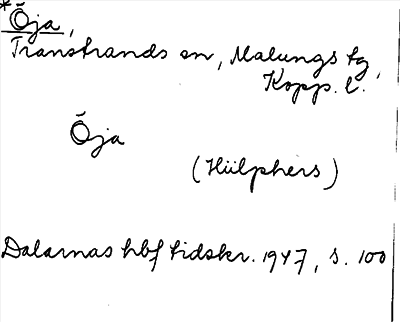 *Õja,
Transtrands sn, Malungs tg,
Kopp. l.
Õja
(Hülphers)
Dalarnas hbf tidskr. 1947, s. 100